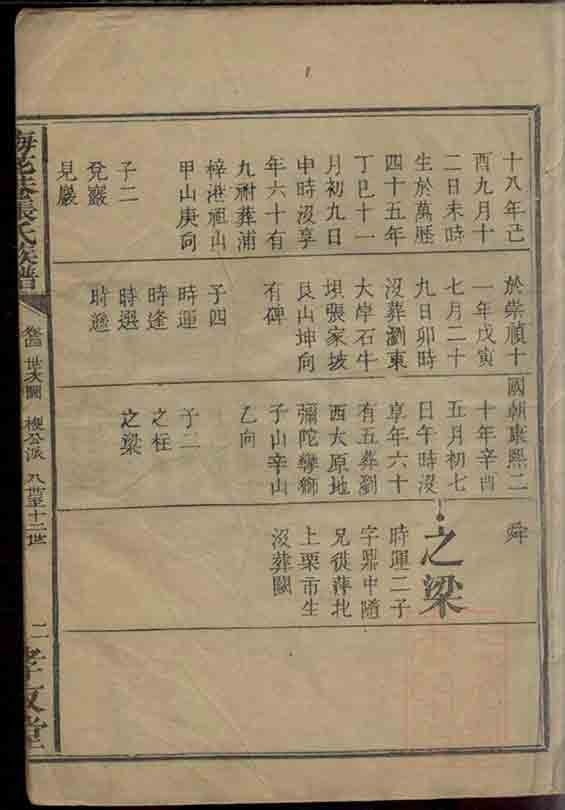 十八年己
酉九月十
二日未時
生於萬歷
四十五年
丁巳十一
月初九日
申時沒享
年六十有
九祔葬浦
梓港祖山
甲山庚向
子二
兌巖
見巖
於崇禎十
一年戊寅
七月二十
九日卯時
沒葬瀏東
大岸石牛
垻張家坡
艮山坤向
有碑
子四
時運
時逢
時選
時遜
國朝康熙二
十年辛酉
五月初七
日午時沒
享年六十
有五葬瀏
西大原地
彌陀巒獅
子山辛山
乙向
子二
之柱
之梁
舜
之梁
時運二子
字鼎中隨
兄從萍北
上栗市生
沒葬闕
梅花巷張氏族譜
世次圖
樱公派
八世至十二世
二
孝友堂